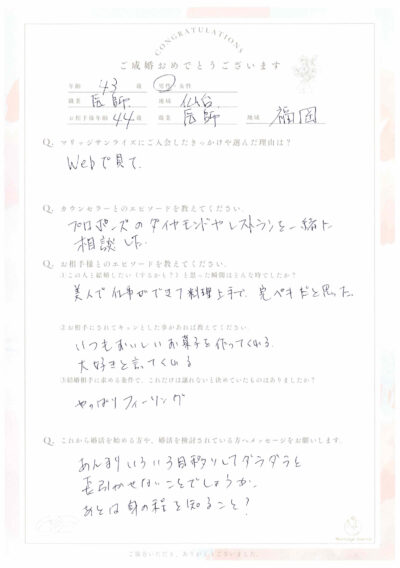 CONGRATULATIONS
ご成婚おめでとうございます
年齢 43 歳 男性・女性
職業 医師 地域 仙台
お相手様年齢 44 歳 医師 地域 福岡
Q. マリッジサンライズにご入会したきっかけや選んだ理由は?
Webで見て.
Q. カウンセラーとのエピソードを教えてください。
プロポーズのダイヤモンドやレストランを一緒に
相談した.
Q. お相手様とのエピソードを教えてください。
①この人と結婚したい(するかも?)と思った瞬間はどんな時でしたか?
美人で仕事ができて料理上手で、完ペキだと思った.
②お相手にされてキュンとした事があれば教えてください。
いつもおいしいお菓子を作ってくれる.
大好きと言ってくれる
③結婚相手に求める条件で、これだけは譲れないと決めていたものはありましたか?
やっぱりフィーリング
Q. これから婚活を始める方や、婚活を検討されている方へメッセージをお願いします。
あんまりいろいろ目移りしてダラダラと
長引かせないことでしょうか.
あとは身の程を知ること?
Marriage Sunrise
ご協力いただき、ありがとうございました。